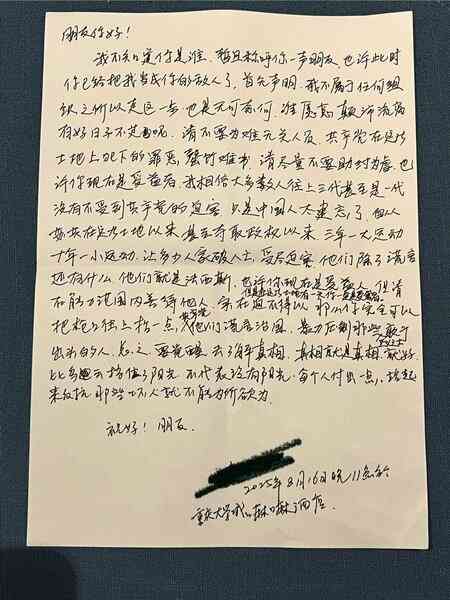 朋友你好！
我不知道你是谁，暂且称呼你一声朋友，也许此时
你已经把我当成你的敌人了，首先声明，我不属于任何组
织之所以走这一步，也是无可奈何，谁愿意颠沛流离
有好日子不过呢，请不要为难无关人员，共产党在这片
土地上犯下的罪恶，罄竹难书，请尽量不要助纣为虐，也
许你现在是受益者，我相信大多数人往上三代甚至是一代
没有不受到共产党的迫害，只是中国人太健忘了，自从
在这片土地以来甚至夺取政权以来，三年一大运动
十年一小运动，让多少人家破人亡，受尽迫害，他们除了谎言
还有什么，他们就是法西斯，也许你现在是受益人，但请
在能力范围内善待他人，实在迫不得以，那你完全可以
把枪口往上抬一点，他们谎言治国，暴力压制那些敢于
出头的人，总之，要觉醒，去了解真相，真相就是真相，就好
比乌云挡住了阳光，不代表没有阳光，每个人付出一点，站起
来反抗，那些人就不能为所欲为。
祝好！朋友。
2025年8月16日晚11点於
重庆大学城酒店